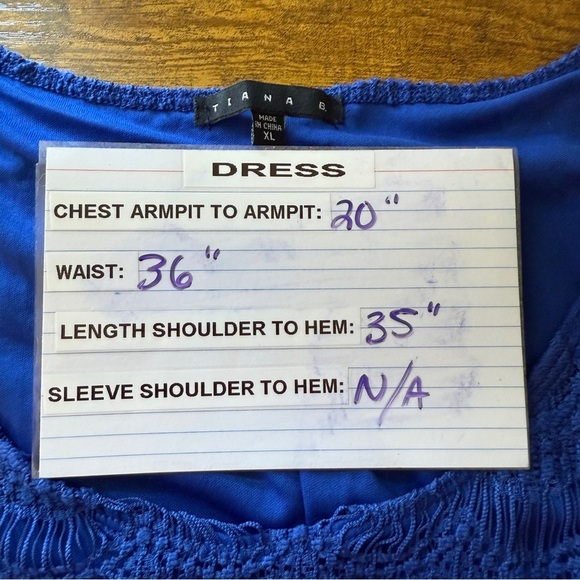 TIANA B.
MADE
IN CHINA
XL
DRESS
CHEST ARMPIT TO ARMPIT: 20"
WAIST: 36"
LENGTH SHOULDER TO HEM: 35"
SLEEVE SHOULDER TO HEM: N/A